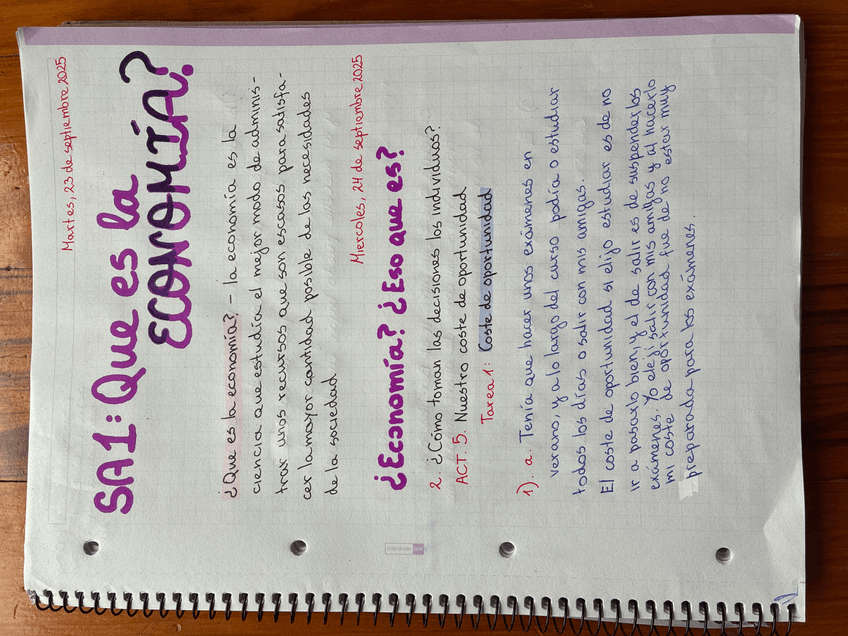 Martes, 23 de septiembre 2025
SA1: Que es la
ECONOMÍA?
¿Que es la economía? - la economía es la
ciencia que estudia el mejor modo de adminis-
trar unos recursos que son escasos para satisfa-
cer la mayor cantidad posible de las necesidades
de la sociedad.
Miercoles, 24 de septiembre 2025
¿Economía? ¿Eso que es?
2. ¿Cómo toman las decisiones los individuos?
ACT. 5. Nuestro coste de oportunidad
Tarea 1: Coste de oportunidad
1). a. Tenía que hacer unos exámenes en
verano, y a lo largo del curso podía o estudiar
todos los días o salir con mis amigas.
El coste de oportunidad si elijo estudiar es de no
ir a pasarlo bien, y el de salir es de suspender los
exámenes. Yo elejí salir con mis amigas y al hacerlo
mi coste de oportunidad fue de no estar muy
preparada para los exámenes.